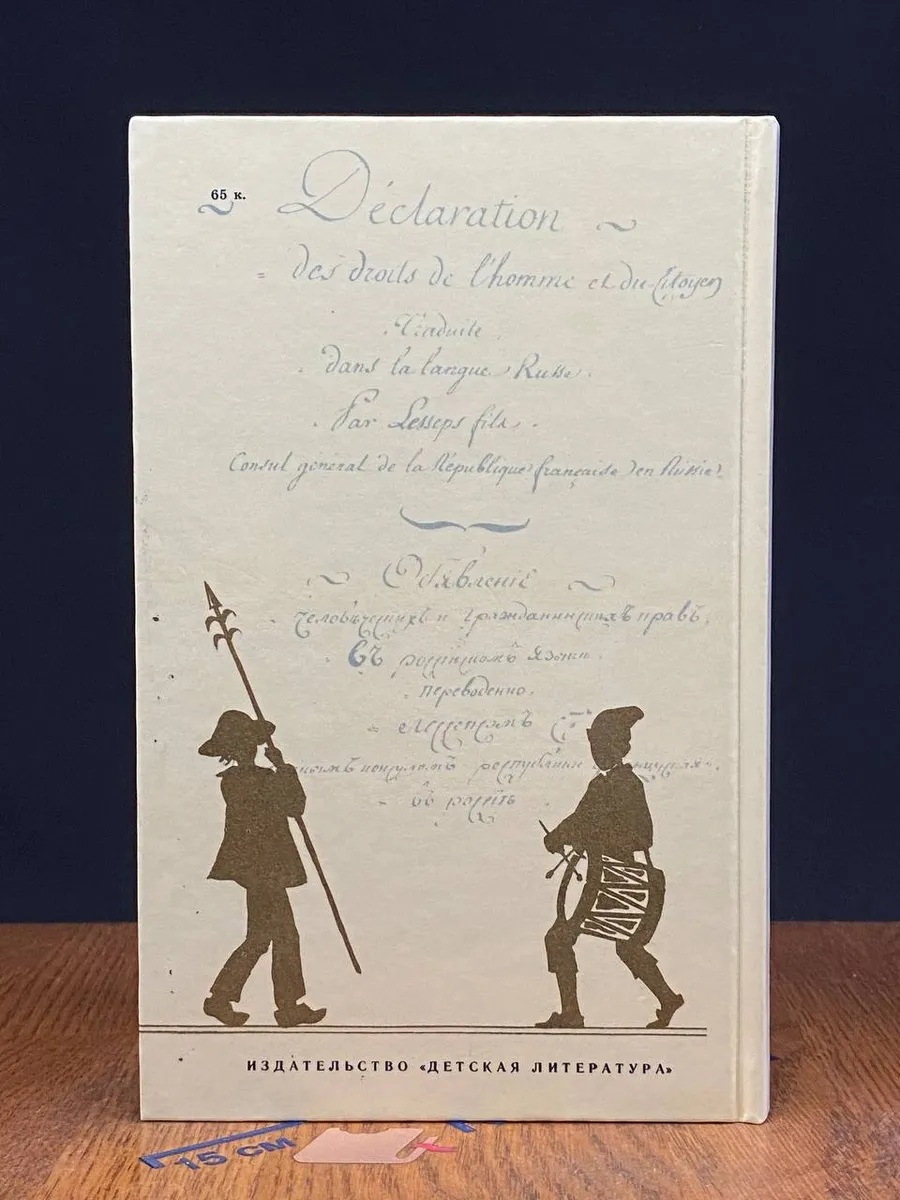 65 к.
Déclaration
des droits de l'homme et du Citoyen
Traduite
dans la langue Russe.
Par Lesseps fils.
Consul général de la République française en Russie.
Объявленіе
человѣческихъ и гражданинскихъ правъ,
въ россійскомъ языкѣ
переведенно.
Лессепомъ
консуломъ республики
въ россіѣ
ИЗДАТЕЛЬСТВО «ДЕТСКАЯ ЛИТЕРАТУРА»
15 СМ